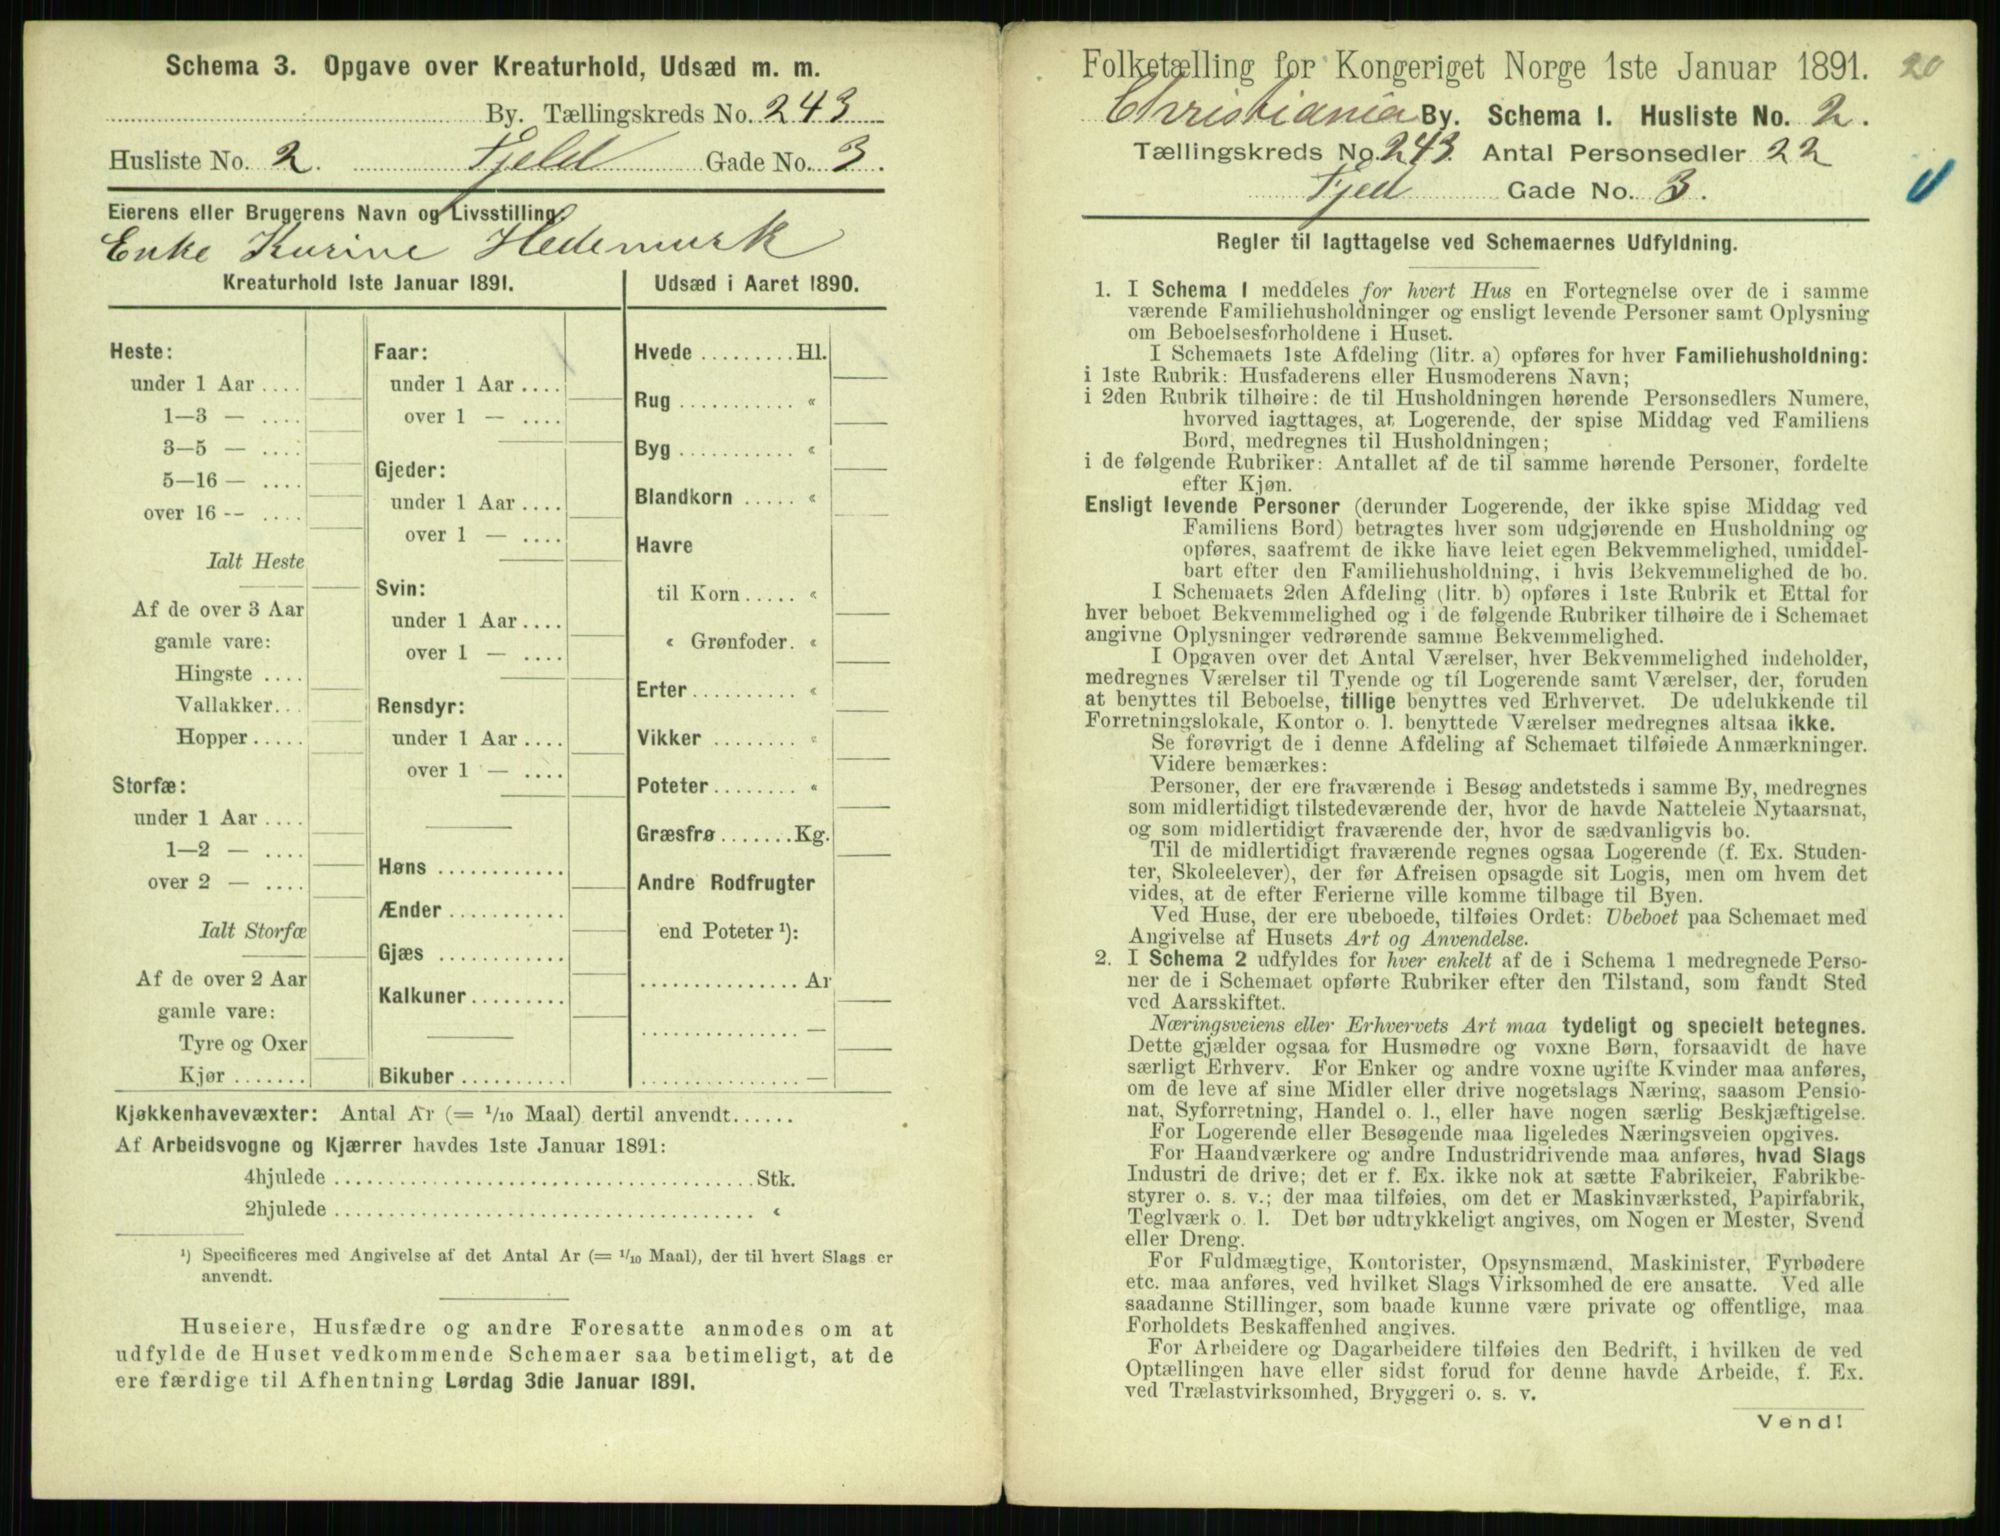 Schema 3. Opgave over Kreaturhold, Udsæd m. m.
By. Tællingskreds No. 243
Husliste No. 2. Fjeld Gade No. 3.
Eierens eller Brugerens Navn og Livsstilling
Enke Karine Hedemark
Kreaturhold 1ste Januar 1891.
Heste:
under 1 Aar ....
1—3 — ....
3—5 — ....
5—16 — ....
over 16 -- ....
Ialt Heste
Af de over 3 Aar
gamle vare:
Hingste ....
Vallakker...
Hopper .....
Storfæ:
under 1 Aar ....
1—2 — ....
over 2 — ....
Ialt Storfæ
Af de over 2 Aar
gamle vare:
Tyre og Oxer
Kjør .......
Faar:
under 1 Aar ....
over 1 — ....
Gjeder:
under 1 Aar ....
over 1 — ....
Svin:
under 1 Aar ....
over 1 — ....
Rensdyr:
under 1 Aar ....
over 1 — ....
Høns ............
Ænder ...........
Gjæs ............
Kalkuner .........
Bikuber ..........
Udsæd i Aaret 1890.
Hvede .........Hl.
Rug ........... «
Byg ........... «
Blandkorn ..... «
Havre
til Korn ..... «
« Grønfoder. «
Erter .......... «
Vikker ........ «
Poteter ........ «
Græsfrø .......Kg.
Andre Rodfrugter
end Poteter ¹):
............... Ar
............... —
............... —
Kjøkkenhavevæxter: Antal Ar (= 1/10 Maal) dertil anvendt......
Af Arbeidsvogne og Kjærrer havdes 1ste Januar 1891:
4hjulede ......................................Stk.
2hjulede ...................................... «
¹) Specificeres med Angivelse af det Antal Ar (= 1/10 Maal), der til hvert Slags er
anvendt.
Huseiere, Husfædre og andre Foresatte anmodes om at
udfylde de Huset vedkommende Schemaer saa betimeligt, at de
ere færdige til Afhentning Lørdag 3die Januar 1891.
Folketælling for Kongeriget Norge 1ste Januar 1891. 20
Christiania By. Schema I. Husliste No. 2.
Tællingskreds No. 243. Antal Personsedler 22
Fjeld Gade No. 3.
Regler til Iagttagelse ved Schemaernes Udfyldning.
1. I Schema 1 meddeles for hvert Hus en Fortegnelse over de i samme
værende Familiehusholdninger og ensligt levende Personer samt Oplysning
om Beboelsesforholdene i Huset.
I Schemaets 1ste Afdeling (litr. a) opføres for hver Familiehusholdning:
i 1ste Rubrik: Husfaderens eller Husmoderens Navn;
i 2den Rubrik tilhøire: de til Husholdningen hørende Personsedlers Numere,
hvorved iagttages, at Logerende, der spise Middag ved Familiens
Bord, medregnes til Husholdningen;
i de følgende Rubriker: Antallet af de til samme hørende Personer, fordelte
efter Kjøn.
Ensligt levende Personer (derunder Logerende, der ikke spise Middag ved
Familiens Bord) betragtes hver som udgjørende en Husholdning og
opføres, saafremt de ikke have leiet egen Bekvemmelighed, umiddel-
bart efter den Familiehusholdning, i hvis Bekvemmelighed de bo.
I Schemaets 2den Afdeling (litr. b) opføres i 1ste Rubrik et Ettal for
hver beboet Bekvemmelighed og i de følgende Rubriker tilhøire de i Schemaet
angivne Oplysninger vedrørende samme Bekvemmelighed.
I Opgaven over det Antal Værelser, hver Bekvemmelighed indeholder,
medregnes Værelser til Tyende og til Logerende samt Værelser, der, foruden
at benyttes til Beboelse, tillige benyttes ved Erhvervet. De udelukkende til
Forretningslokale, Kontor o. l. benyttede Værelser medregnes altsaa ikke.
Se forøvrigt de i denne Afdeling af Schemaet tilføiede Anmærkninger.
Videre bemærkes:
Personer, der ere fraværende i Besøg andetsteds i samme By, medregnes
som midlertidigt tilstedeværende der, hvor de havde Natteleie Nytaarsnat,
og som midlertidigt fraværende der, hvor de sædvanligvis bo.
Til de midlertidigt fraværende regnes ogsaa Logerende (f. Ex. Studen-
ter, Skoleelever), der før Afreisen opsagde sit Logis, men om hvem det
vides, at de efter Ferierne ville komme tilbage til Byen.
Ved Huse, der ere ubeboede, tilføies Ordet: Ubeboet paa Schemaet med
Angivelse af Husets Art og Anvendelse.
2. I Schema 2 udfyldes for hver enkelt af de i Schema 1 medregnede Perso-
ner de i Schemaet opførte Rubriker efter den Tilstand, som fandt Sted
ved Aarsskiftet.
Næringsveiens eller Erhvervets Art maa tydeligt og specielt betegnes.
Dette gjælder ogsaa for Husmødre og voxne Børn, forsaavidt de have
særligt Erhverv. For Enker og andre voxne ugifte Kvinder maa anføres,
om de leve af sine Midler eller drive nogetslags Næring, saasom Pensio-
nat, Syforretning, Handel o. l., eller have nogen særlig Beskjæftigelse.
For Logerende eller Besøgende maa ligeledes Næringsveien opgives.
For Haandværkere og andre Industridrivende maa anføres, hvad Slags
Industri de drive; det er f. Ex. ikke nok at sætte Fabrikeier, Fabrikbe-
styrer o. s. v.; der maa tilføies, om det er Maskinværksted, Papirfabrik,
Teglværk o. l. Det bør udtrykkeligt angives, om Nogen er Mester, Svend
eller Dreng.
For Fuldmægtige, Kontorister, Opsynsmænd, Maskinister, Fyrbødere
etc. maa anføres, ved hvilket Slags Virksomhed de ere ansatte. Ved alle
saadanne Stillinger, som baade kunne være private og offentlige, maa
Forholdets Beskaffenhed angives.
For Arbeidere og Dagarbeidere tilføies den Bedrift, i hvilken de ved
Optællingen have eller sidst forud for denne havde Arbeide, f. Ex.
ved Trælastvirksomhed, Bryggeri o. s. v.
Vend!